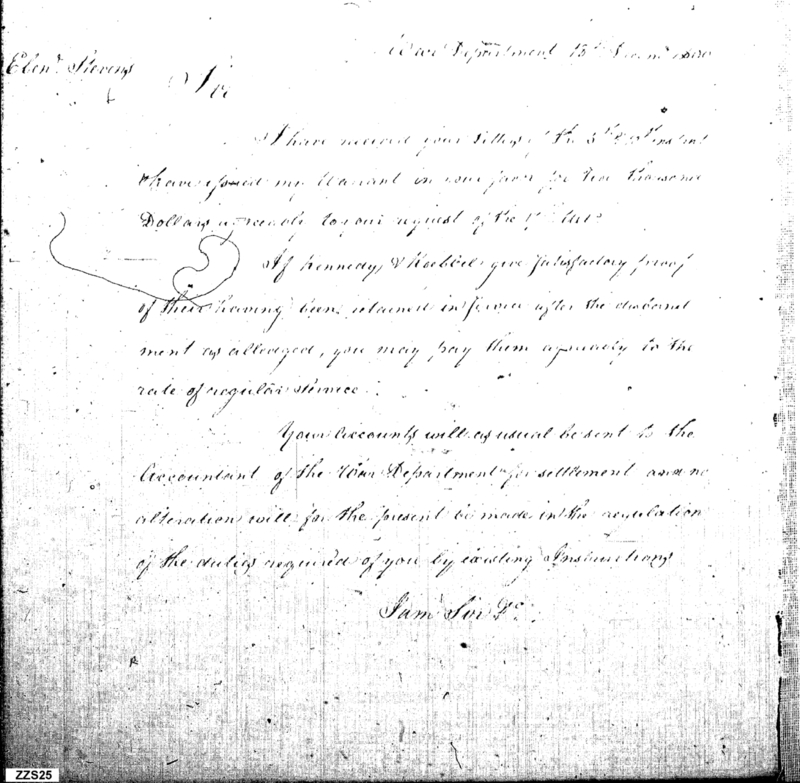 War Department 13th Decem. 1800
Ebenr. Stevens
Sir
I have received your letters of the 5th & 10th instant
& have issued my Warrant in your favor for two thousand
Dollars agreeable to your request of the
If Kennedy & give satisfactory proof
of their having been retained in service after the disband
ment as alledged, you may pay them agreeably to the
rate of regular service.
Your Accounts will as usual be sent to the
Accountant of the War Department for settlement and no
alteration will for the present be made in the regulation
of the duties required of you by existing Instructions
I am Sir &c.
ZZS25